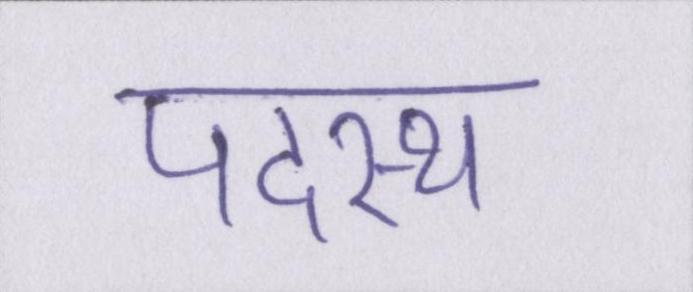 पदस्थ